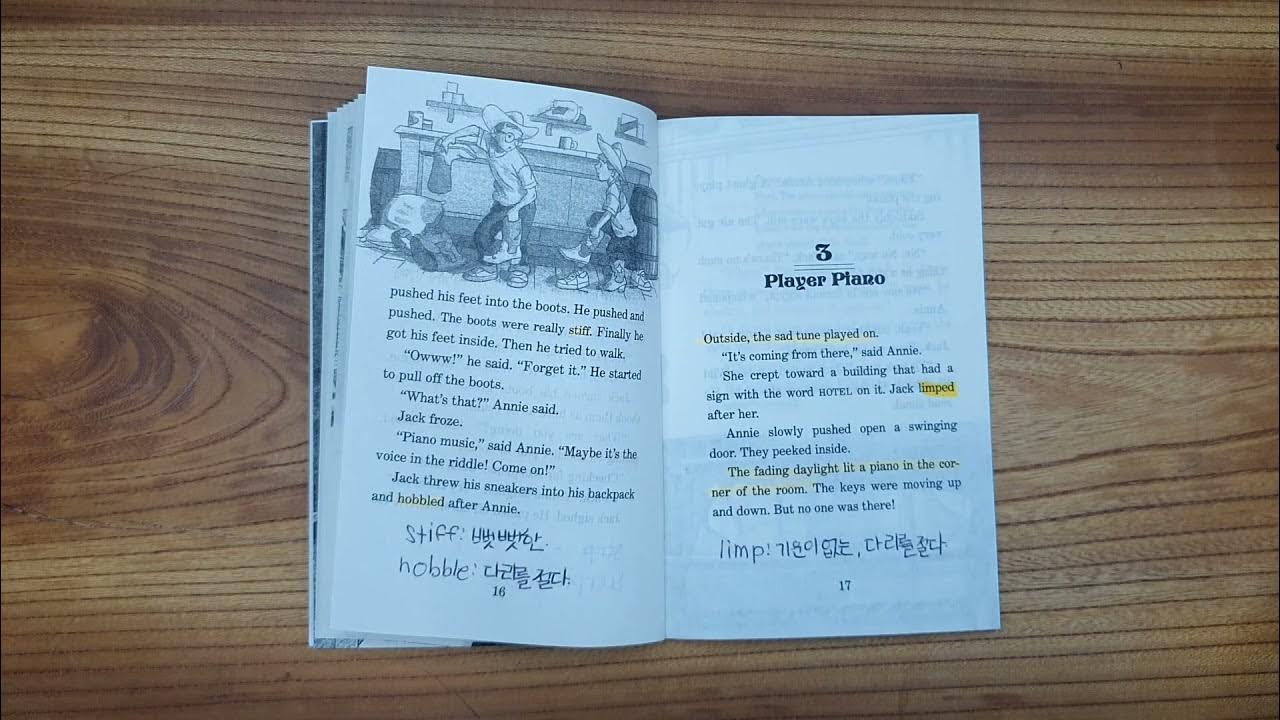 pushed his feet into the boots. He pushed and
pushed. The boots were really stiff. Finally he
got his feet inside. Then he tried to walk.
"Owww!" he said. "Forget it." He started
to pull off the boots.
"What's that?" Annie said.
Jack froze.
"Piano music," said Annie. "Maybe it's the
voice in the riddle! Come on!"
Jack threw his sneakers into his backpack
and hobbled after Annie.
stiff: 뻣뻣한.
hobble: 다리를 절다.
16
3
Player Piano
Outside, the sad tune played on.
"It's coming from there," said Annie.
She crept toward a building that had a
sign with the word HOTEL on it. Jack limped
after her.
Annie slowly pushed open a swinging
door. They peeked inside.
The fading daylight lit a piano in the cor-
ner of the room. The keys were moving up
and down. But no one was there!
limp: 기운이 없는, 다리를 절다
17